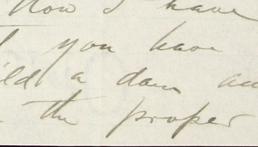 Now I have
you have
a dam
the proper